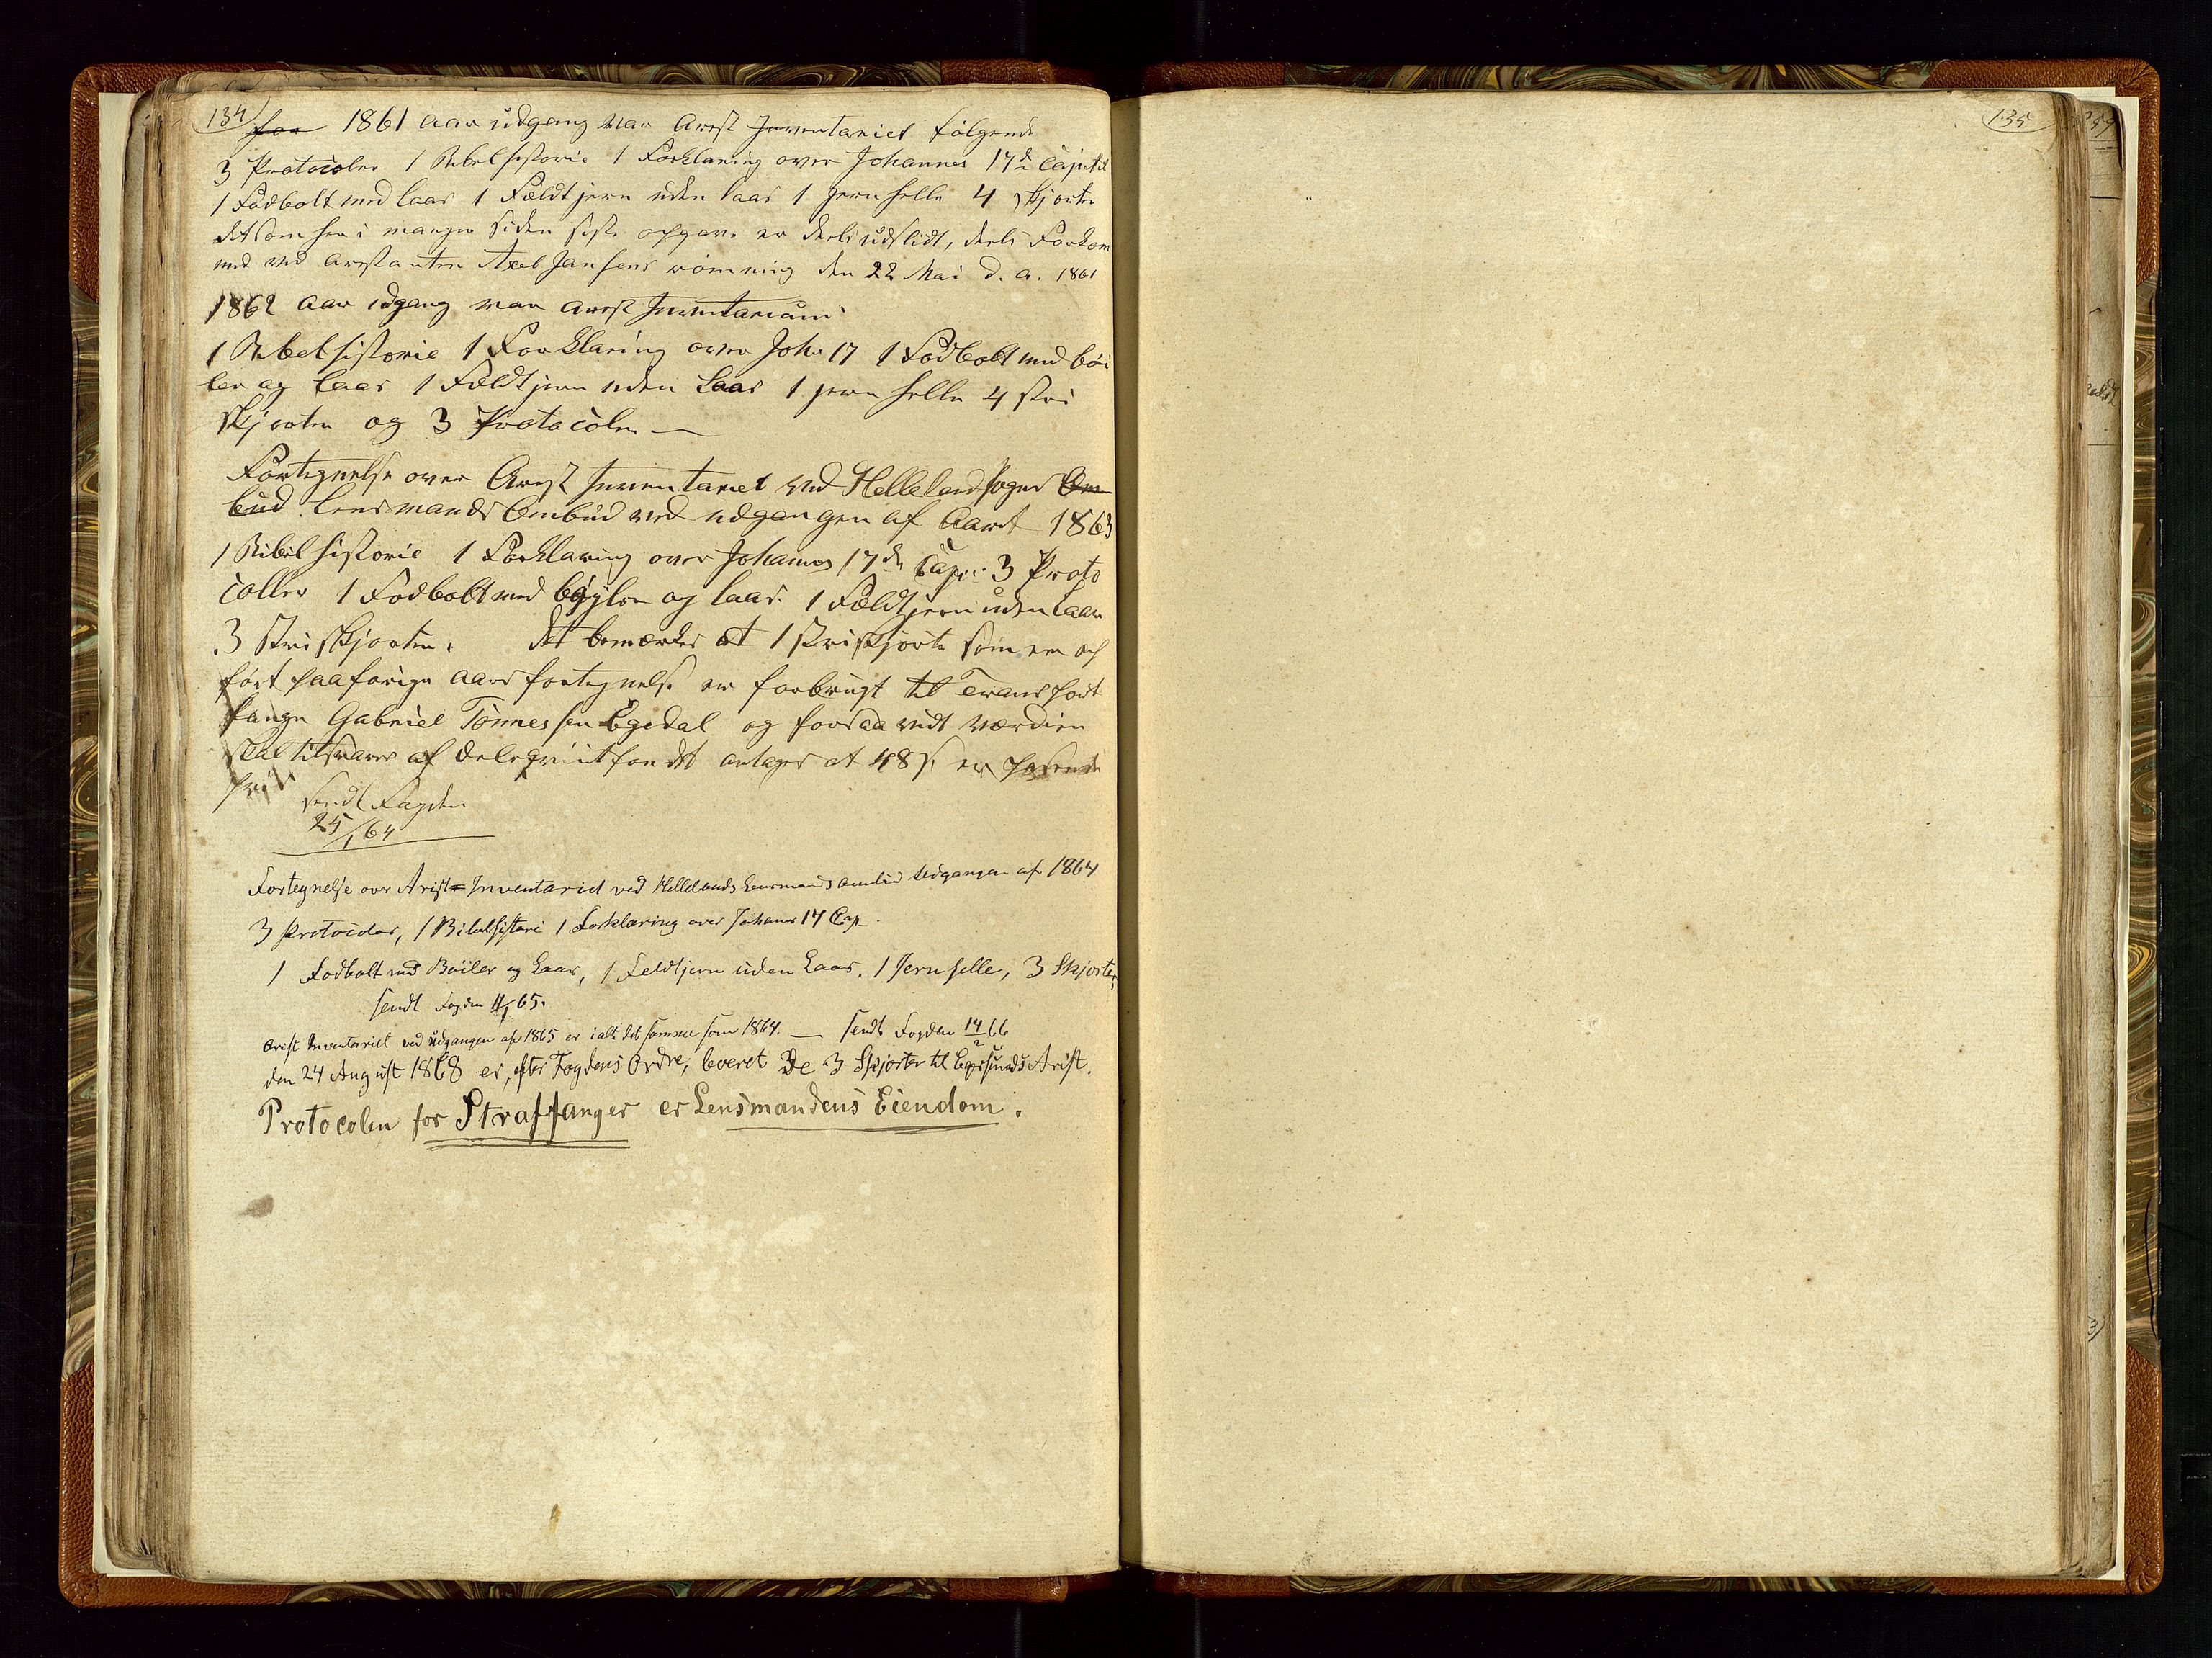 134
for 1861 aar udgang var Arest Inventariet følgende
3 Protocoler 1 Bibelhistorie 1 Forklaring over Johannes 17de Capitel
1 Fodbolt med laas 1 Fældtjern uden laas 1 jern helle 4 skjorter
det som her i mangler siden siste opgave er deels udslidt, deels Forkom
met ved arestanten Axel Jansens rømming den 22 Mai d. a. 1861
1862 aar udgang var arest Inventarium
1 Bibelhistorie 1 Forklaring over Joh. 17 1 Fodbolt med bøi
ler og laas 1 Fældtjern uden Laas 1 jern helle 4 stri
skjorter og 3 Protocoler
Fortegnelse over Arest Inventariet ved Helleland sogns Om
bud Lensmands Ombud ved udgangen af Aaret 1863
1 Bibelhistorie 1 Forklaring over Johannes 17de Cap: 3 Proto
coller 1 Fodbolt med bøyler og laas. 1 Fældtjern uden Laas
3 Striskjorter. det bemærkes at 1 striskjorte som er op
ført paa forige aars fortegnelse er forbrugt til Transport
fange Gabriel Tønnessen Egedal og forsaavidt værdien
skal tilsvares af Deleqvintfondet antages at 48 s. er passende
priis
sendt Fogden
25/1 64
Fortegnelse over Arist=Inventariet ved Hellelands Lensmandsombud Udgangen af 1864
3 Protocoler, 1 Bibelhistori 1 Forklaring over Johanes 17 Cap.
1 Fodbolt med Bøiler og Laas, 1 Feldtjern uden Laas. 1 Jernhelle, 3 Skjorter,
sendt Fogden 4/1 65.
Arist Inventariet ved Udgangen af 1865 er ialt det samme som 1864. — sendt Fogden 14/2 66
den 24 August 1868 er, efter Fogdens Ordre, leveret De 3 Skjorter til Egersunds Arist.
Protocolen for Straffanger er Lensmandens Eiendom.
135